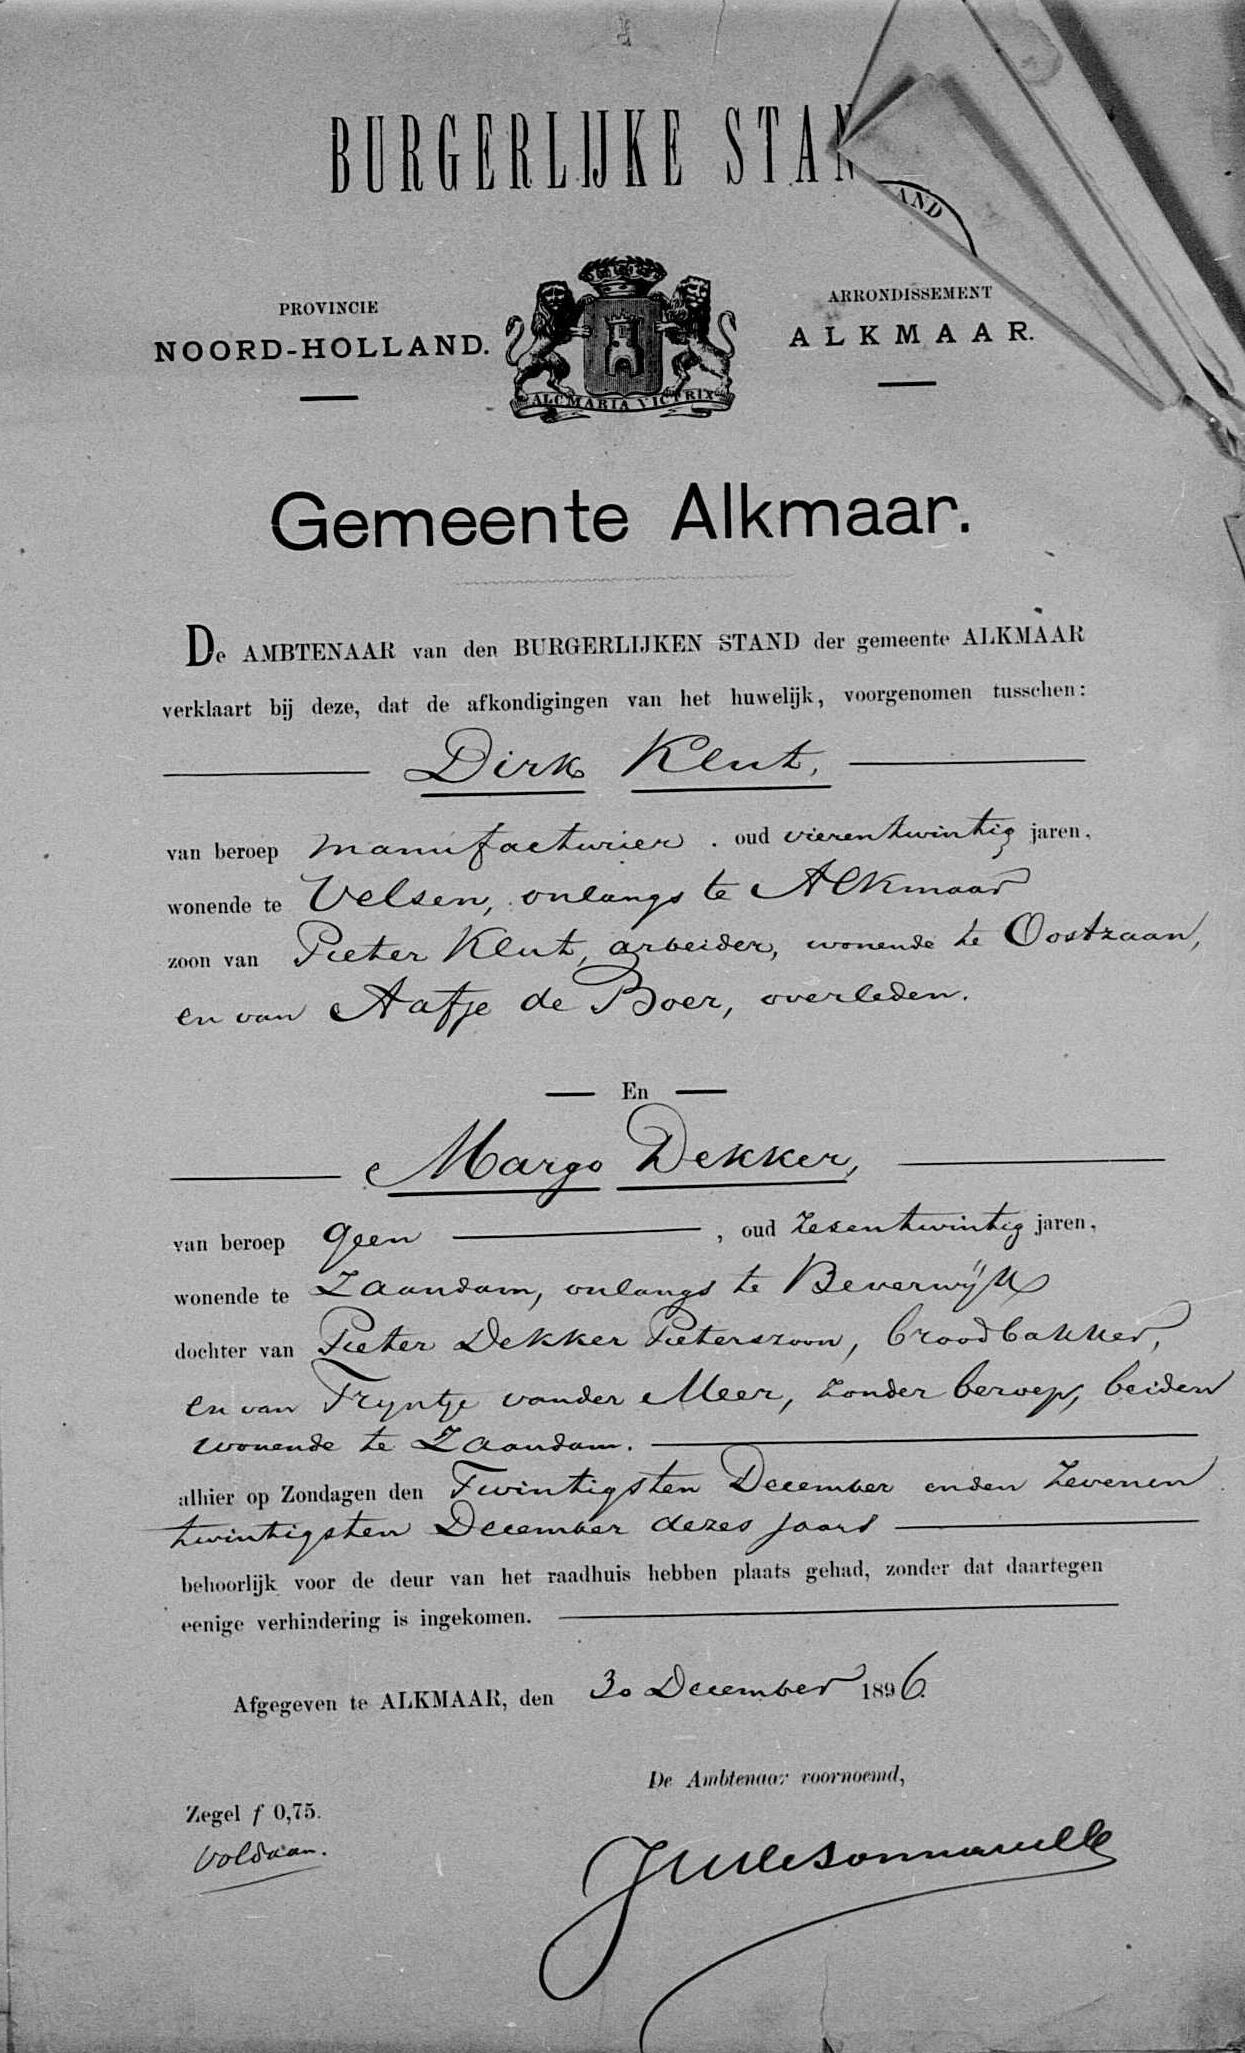 BURGERLIJKE STAN
AND
PROVINCIE
NOORD-HOLLAND.
ARRONDISSEMENT
ALKMAAR.
ALCMARIA VICTRIX
Gemeente Alkmaar.
De AMBTENAAR van den BURGERLIJKEN STAND der gemeente ALKMAAR
verklaart bij deze, dat de afkondigingen van het huwelijk, voorgenomen tusschen:
Dirk Klut,
van beroep manufacturier. oud vierentwintig jaren,
wonende te Velsen, onlangs te Alkmaar
zoon van Pieter Klut, arbeider, wonende te Oostzaan,
en van Aafje de Boer, overleden.
— En —
Margo Dekker,
van beroep geen —, oud zesentwintig jaren,
wonende te Zaandam, onlangs te Beverwijk
dochter van Pieter Dekker Pieterszoon, broodbakker,
en van Tryntje vander Meer, zonder beroep, beiden
wonende te Zaandam.
alhier op Zondagen den Twintigsten December en den zevenen
twintigsten December dezes jaars
behoorlijk voor de deur van het raadhuis hebben plaats gehad, zonder dat daartegen
eenige verhindering is ingekomen.
Afgegeven te ALKMAAR, den 30 December 1896.
De Ambtenaar voornoemd,
Zegel f 0,75.
Voldaan.